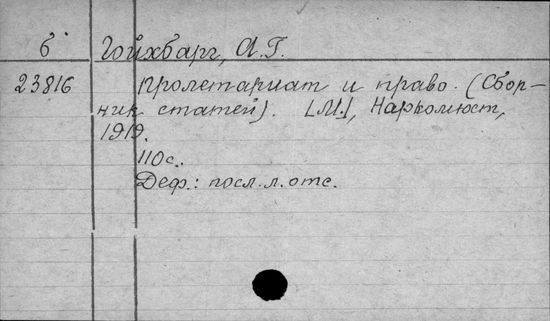 б Гойхбарг, А.Г.
23816 Пролетариат и право. (Сбор-
ник статей). [М.], Наркомюст,
1919.
110с.
Деф.: посл.л.отс.